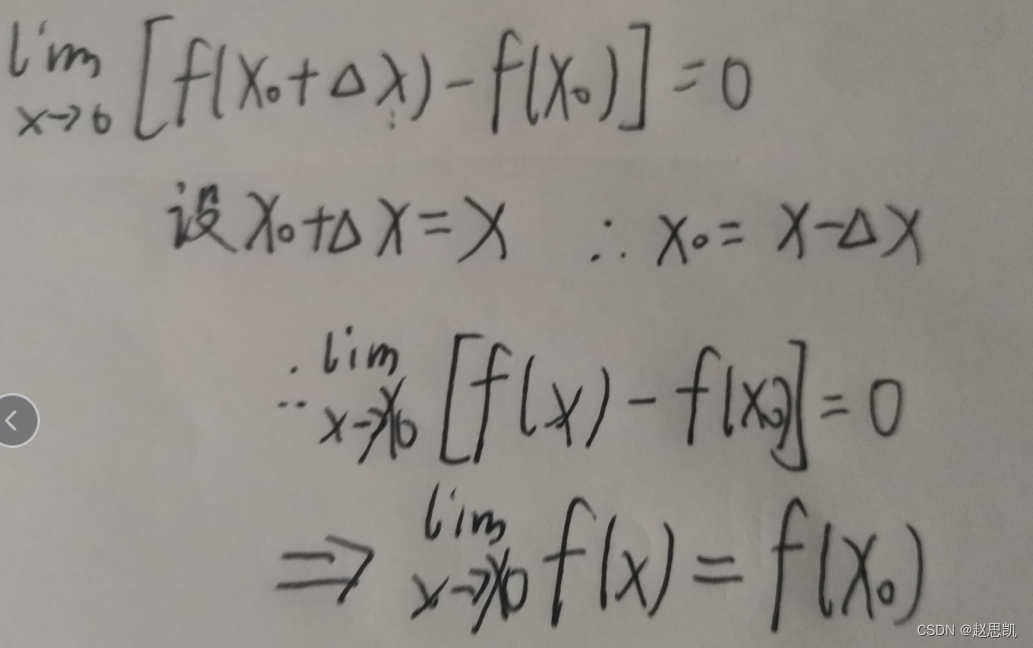 lim x→0 [f(x₀+Δx)-f(x₀)]=0
设 x₀+Δx=x ∴ x₀=x-Δx
∴ lim x→x₀ [f(x)-f(x₀)]=0
⇒ lim x→x₀ f(x)=f(x₀)
CSDN @赵思凯